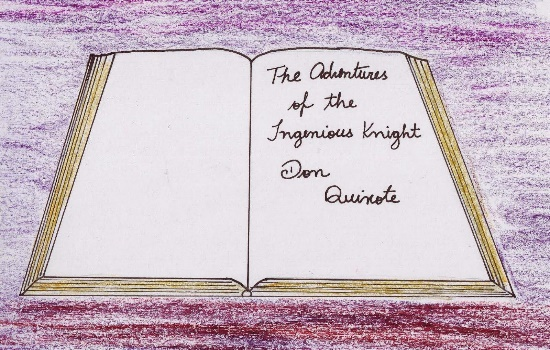 The Adventures
of the
Ingenious Knight
Don
Quixote